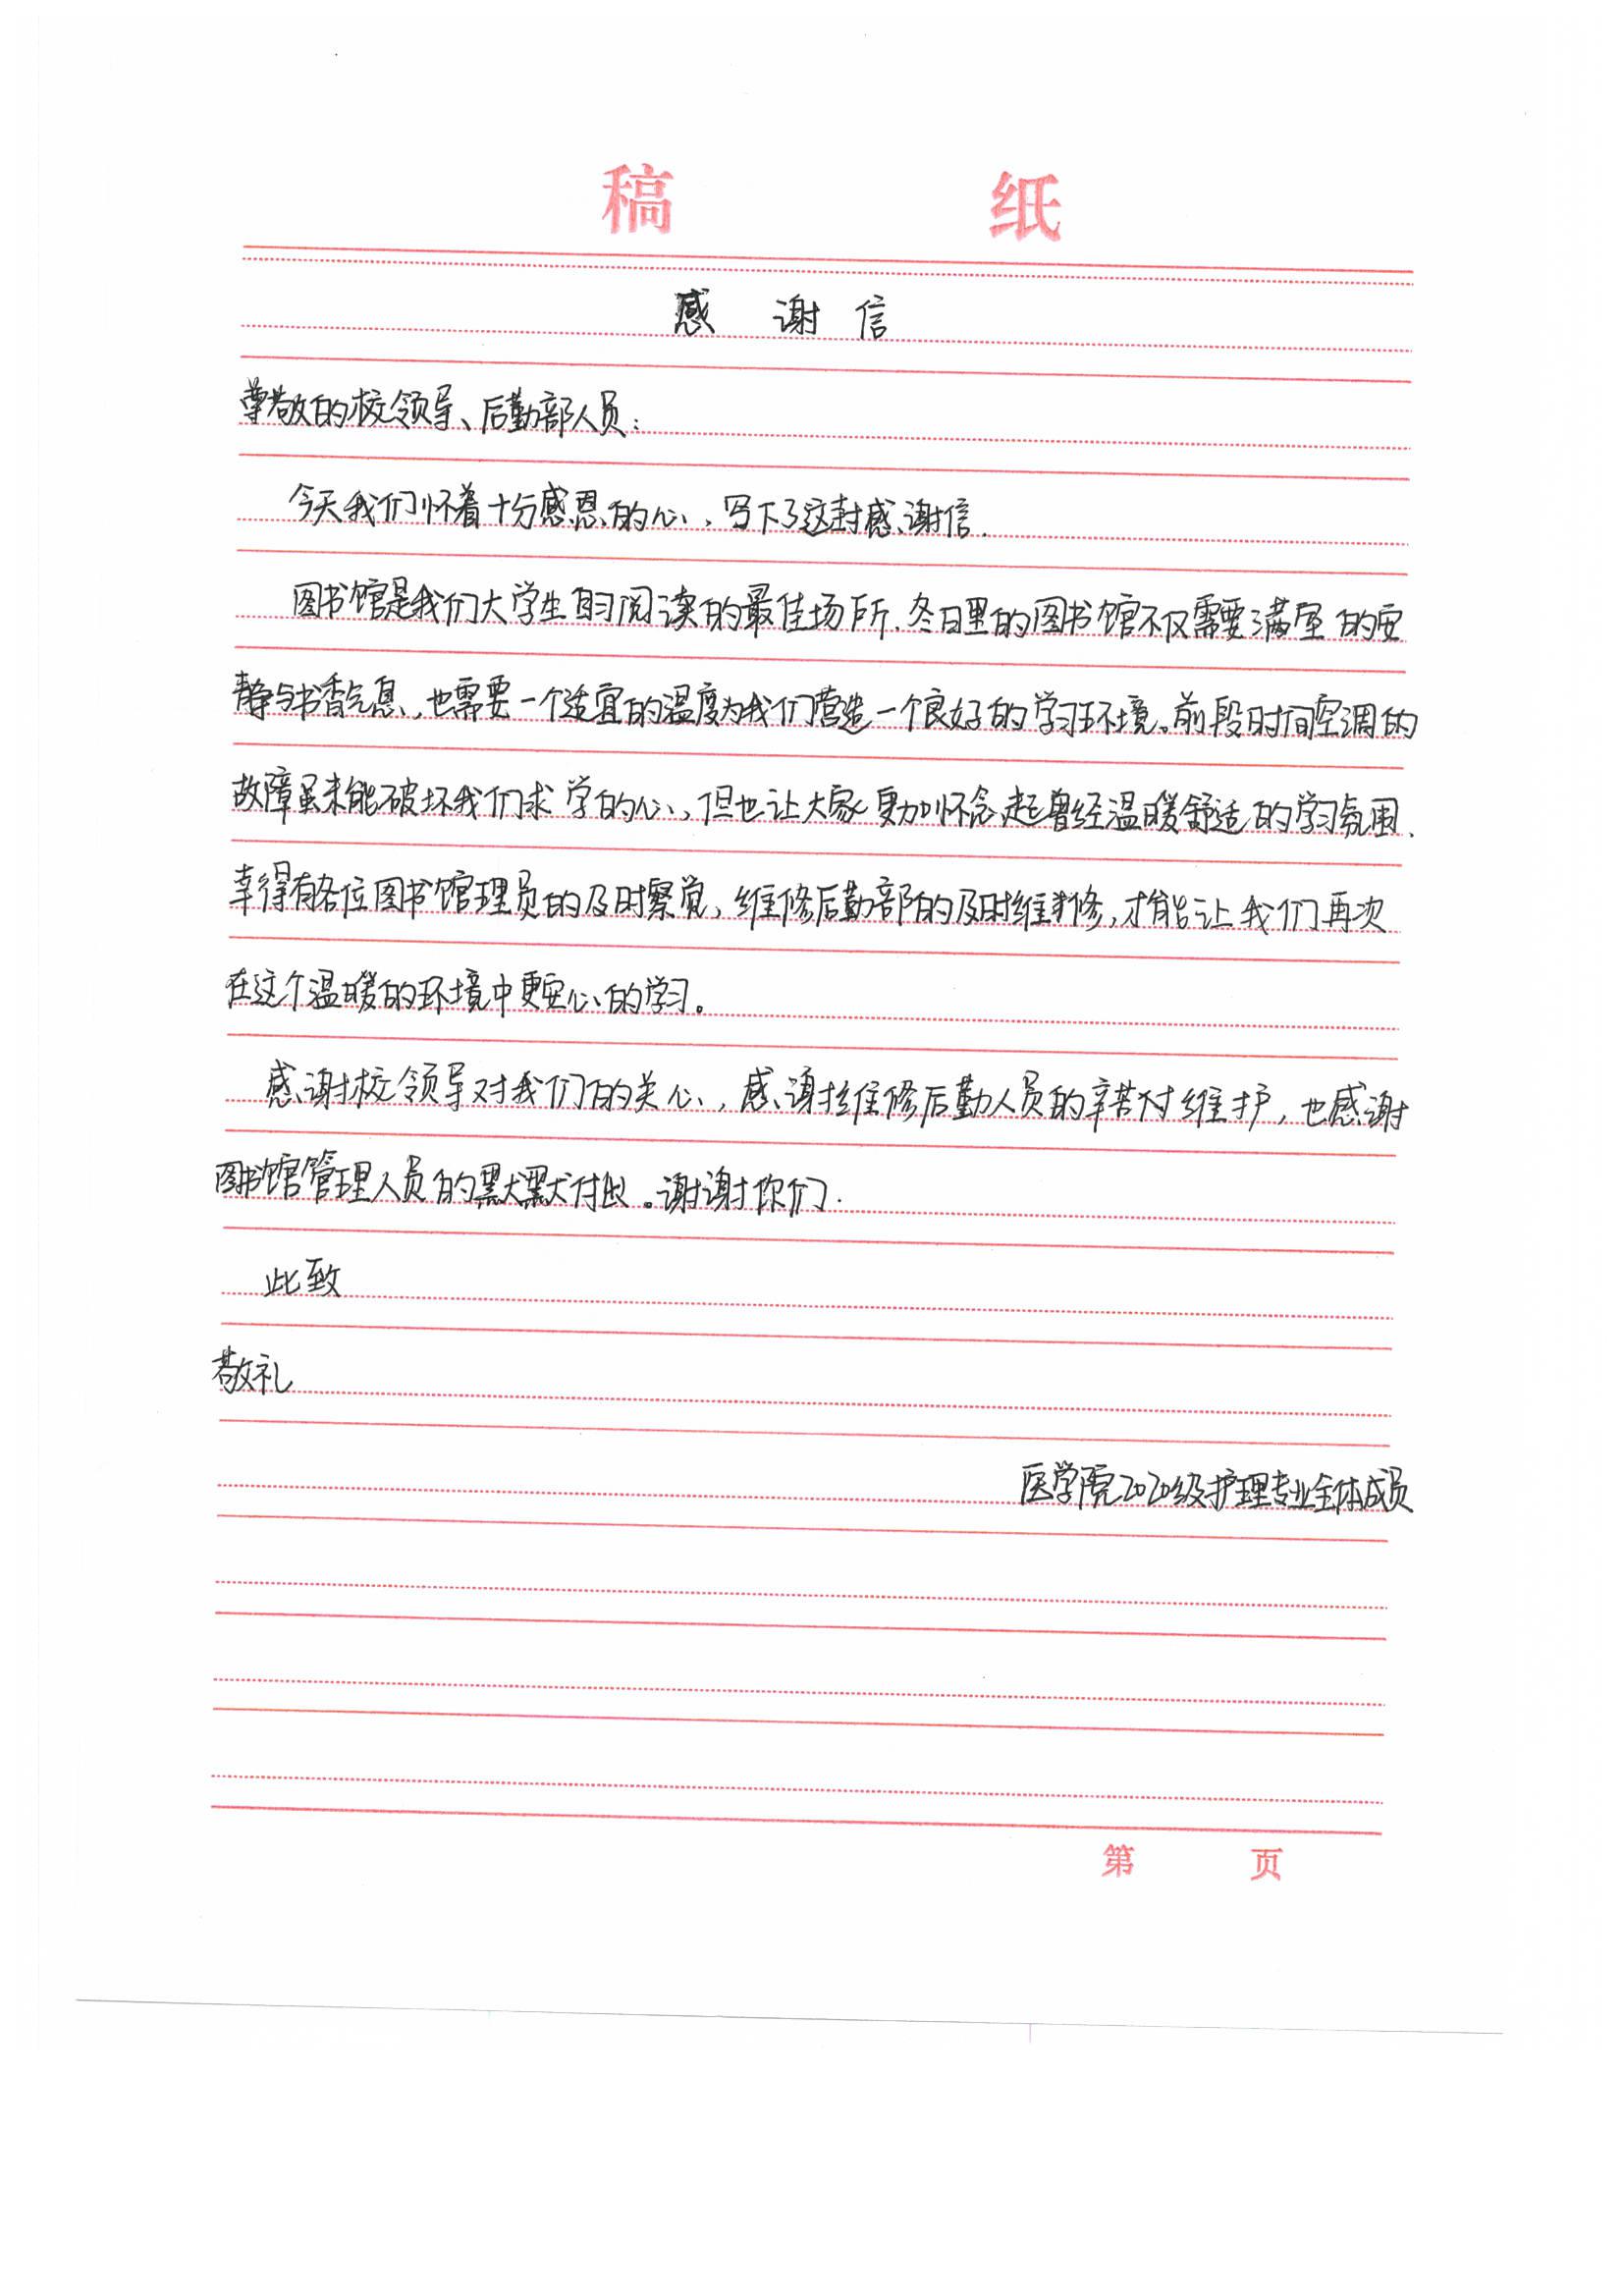 稿 纸
感 谢 信
尊敬的校领导、后勤部人员：
今天我们怀着十分感恩的心，写下了这封感谢信.
图书馆是我们大学生自习阅读的最佳场所.冬日里的图书馆不仅需要满室的安
静与书香气息，也需要一个适宜的温度为我们营造一个良好的学习环境。前段时间空调的
故障虽未能破坏我们求学的心，但也让大家更加怀念起曾经温暖舒适的学习氛围.
幸得有各位图书馆理员的及时察觉，维修后勤部的及时维修，才能让我们再次
在这个温暖的环境中更安心的学习。
感谢校领导对我们的关心，感谢维修后勤人员的辛苦付维护，也感谢
图书馆管理人员的默默付出。谢谢你们.
此致
敬礼
医学院2020级护理专业全体成员
第 页